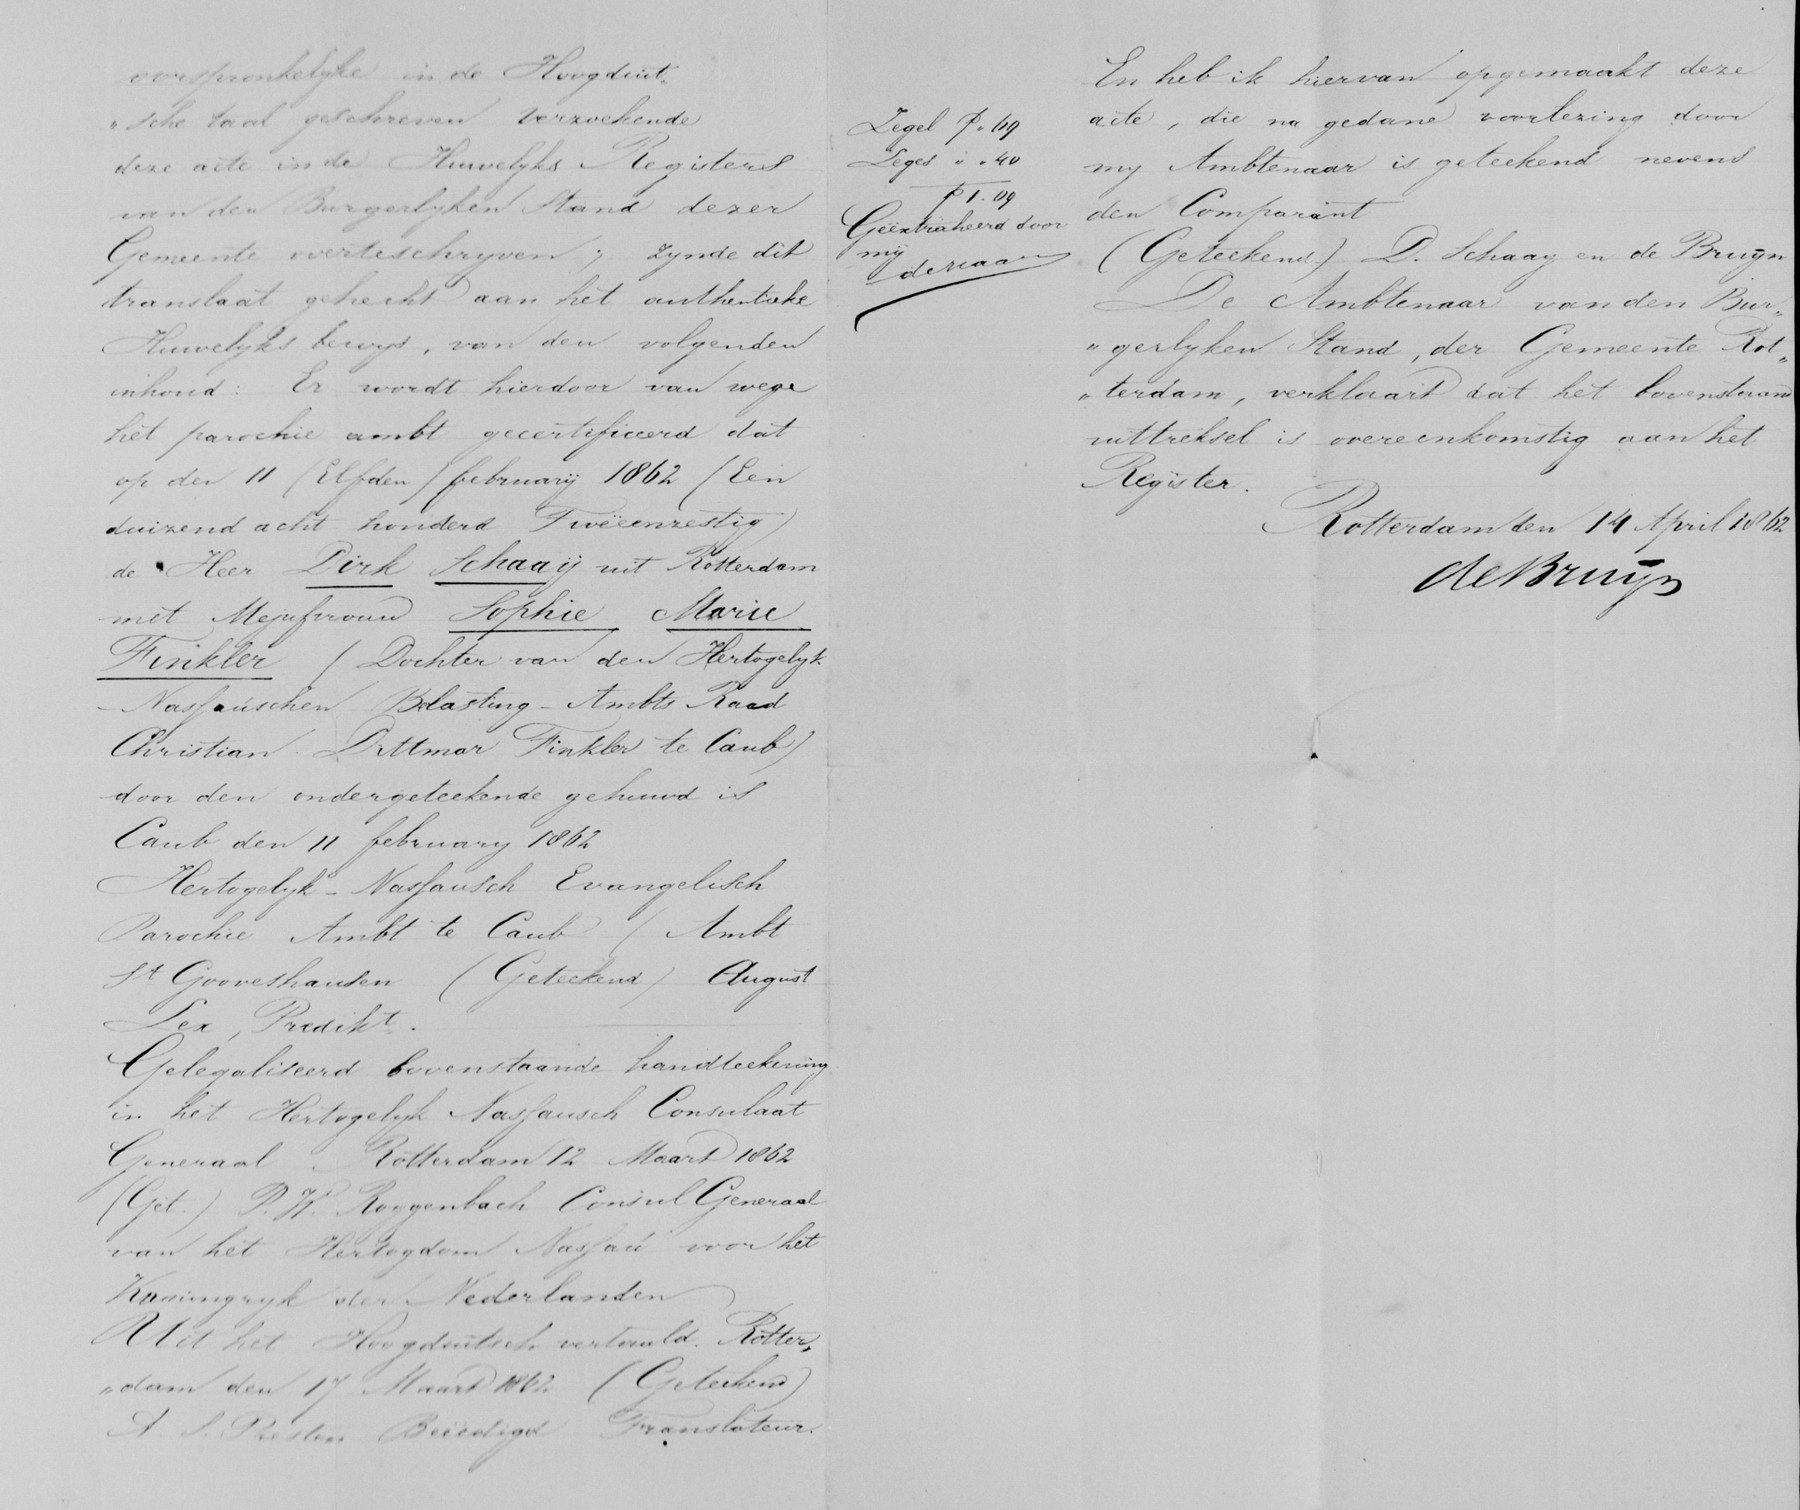 oorspronkelyke in de Hoogduit„
„sche taal geschreven verzoekende
deze acte in de Huwelyks Registers
van den Burgerlyken Stand dezer
Gemeente overteschryven ; zynde dit
translaat gehecht aan het authentieke
Huwelyks bewys, van den volgenden
inhoud : Er wordt hierdoor van wege
het parochie ambt gecertificeerd dat
op den 11 (Elfden) februarÿ 1862 (Een
duizend acht honderd Tweëenzestig)
de Heer Dirk Schaaÿ uit Rotterdam
met Mejufvrouw Sophie Marie
Finkler (Dochter van den Hertogelyk
- Nassauschen Belasting - Ambts Raad
Christian Dittmar Finkler te Caub)
door den ondergeteekende gehuwd is
Caub den 11 february 1862
Hertogelyk - Nassausch Evangelisch
Parochie Ambt te Caub (Ambt
St Gooveshausen (Geteekend) August
Lex, Predikt.
Gelegaliseerd bovenstaande handteekening
in het Hertogelyk Nassausch Consulaat
Generaal Rotterdam 12 Maart 1862
(Get.) P. W. Roggenbach Consul Generaal
van het Hertogdom Nassau voor het
Koningryk der Nederlanden
Uit het Hoogduitsch vertaald. Rotter„
„dam den 17 Maart 1862 (Geteekend)
A. S. Preston Beëedigd Translateur.
Zegel f „ 69
Leges „ „ 40
f 1. 09
Geëxtraheerd door
mÿ
de Haan
En heb ik hiervan opgemaakt deze
acte, die na gedane voorlezing door
my Ambtenaar is geteekend nevens
den Comparant
(Geteekend) D. Schaay en de Bruÿn
De Ambtenaar van den Bur„
„gerlyken Stand, der Gemeente Rot„
„terdam, verklaart dat het bovenstaand
uittreksel is overeenkomstig aan het
Regïster.
Rotterdam den 14 April 1862
de Bruÿn